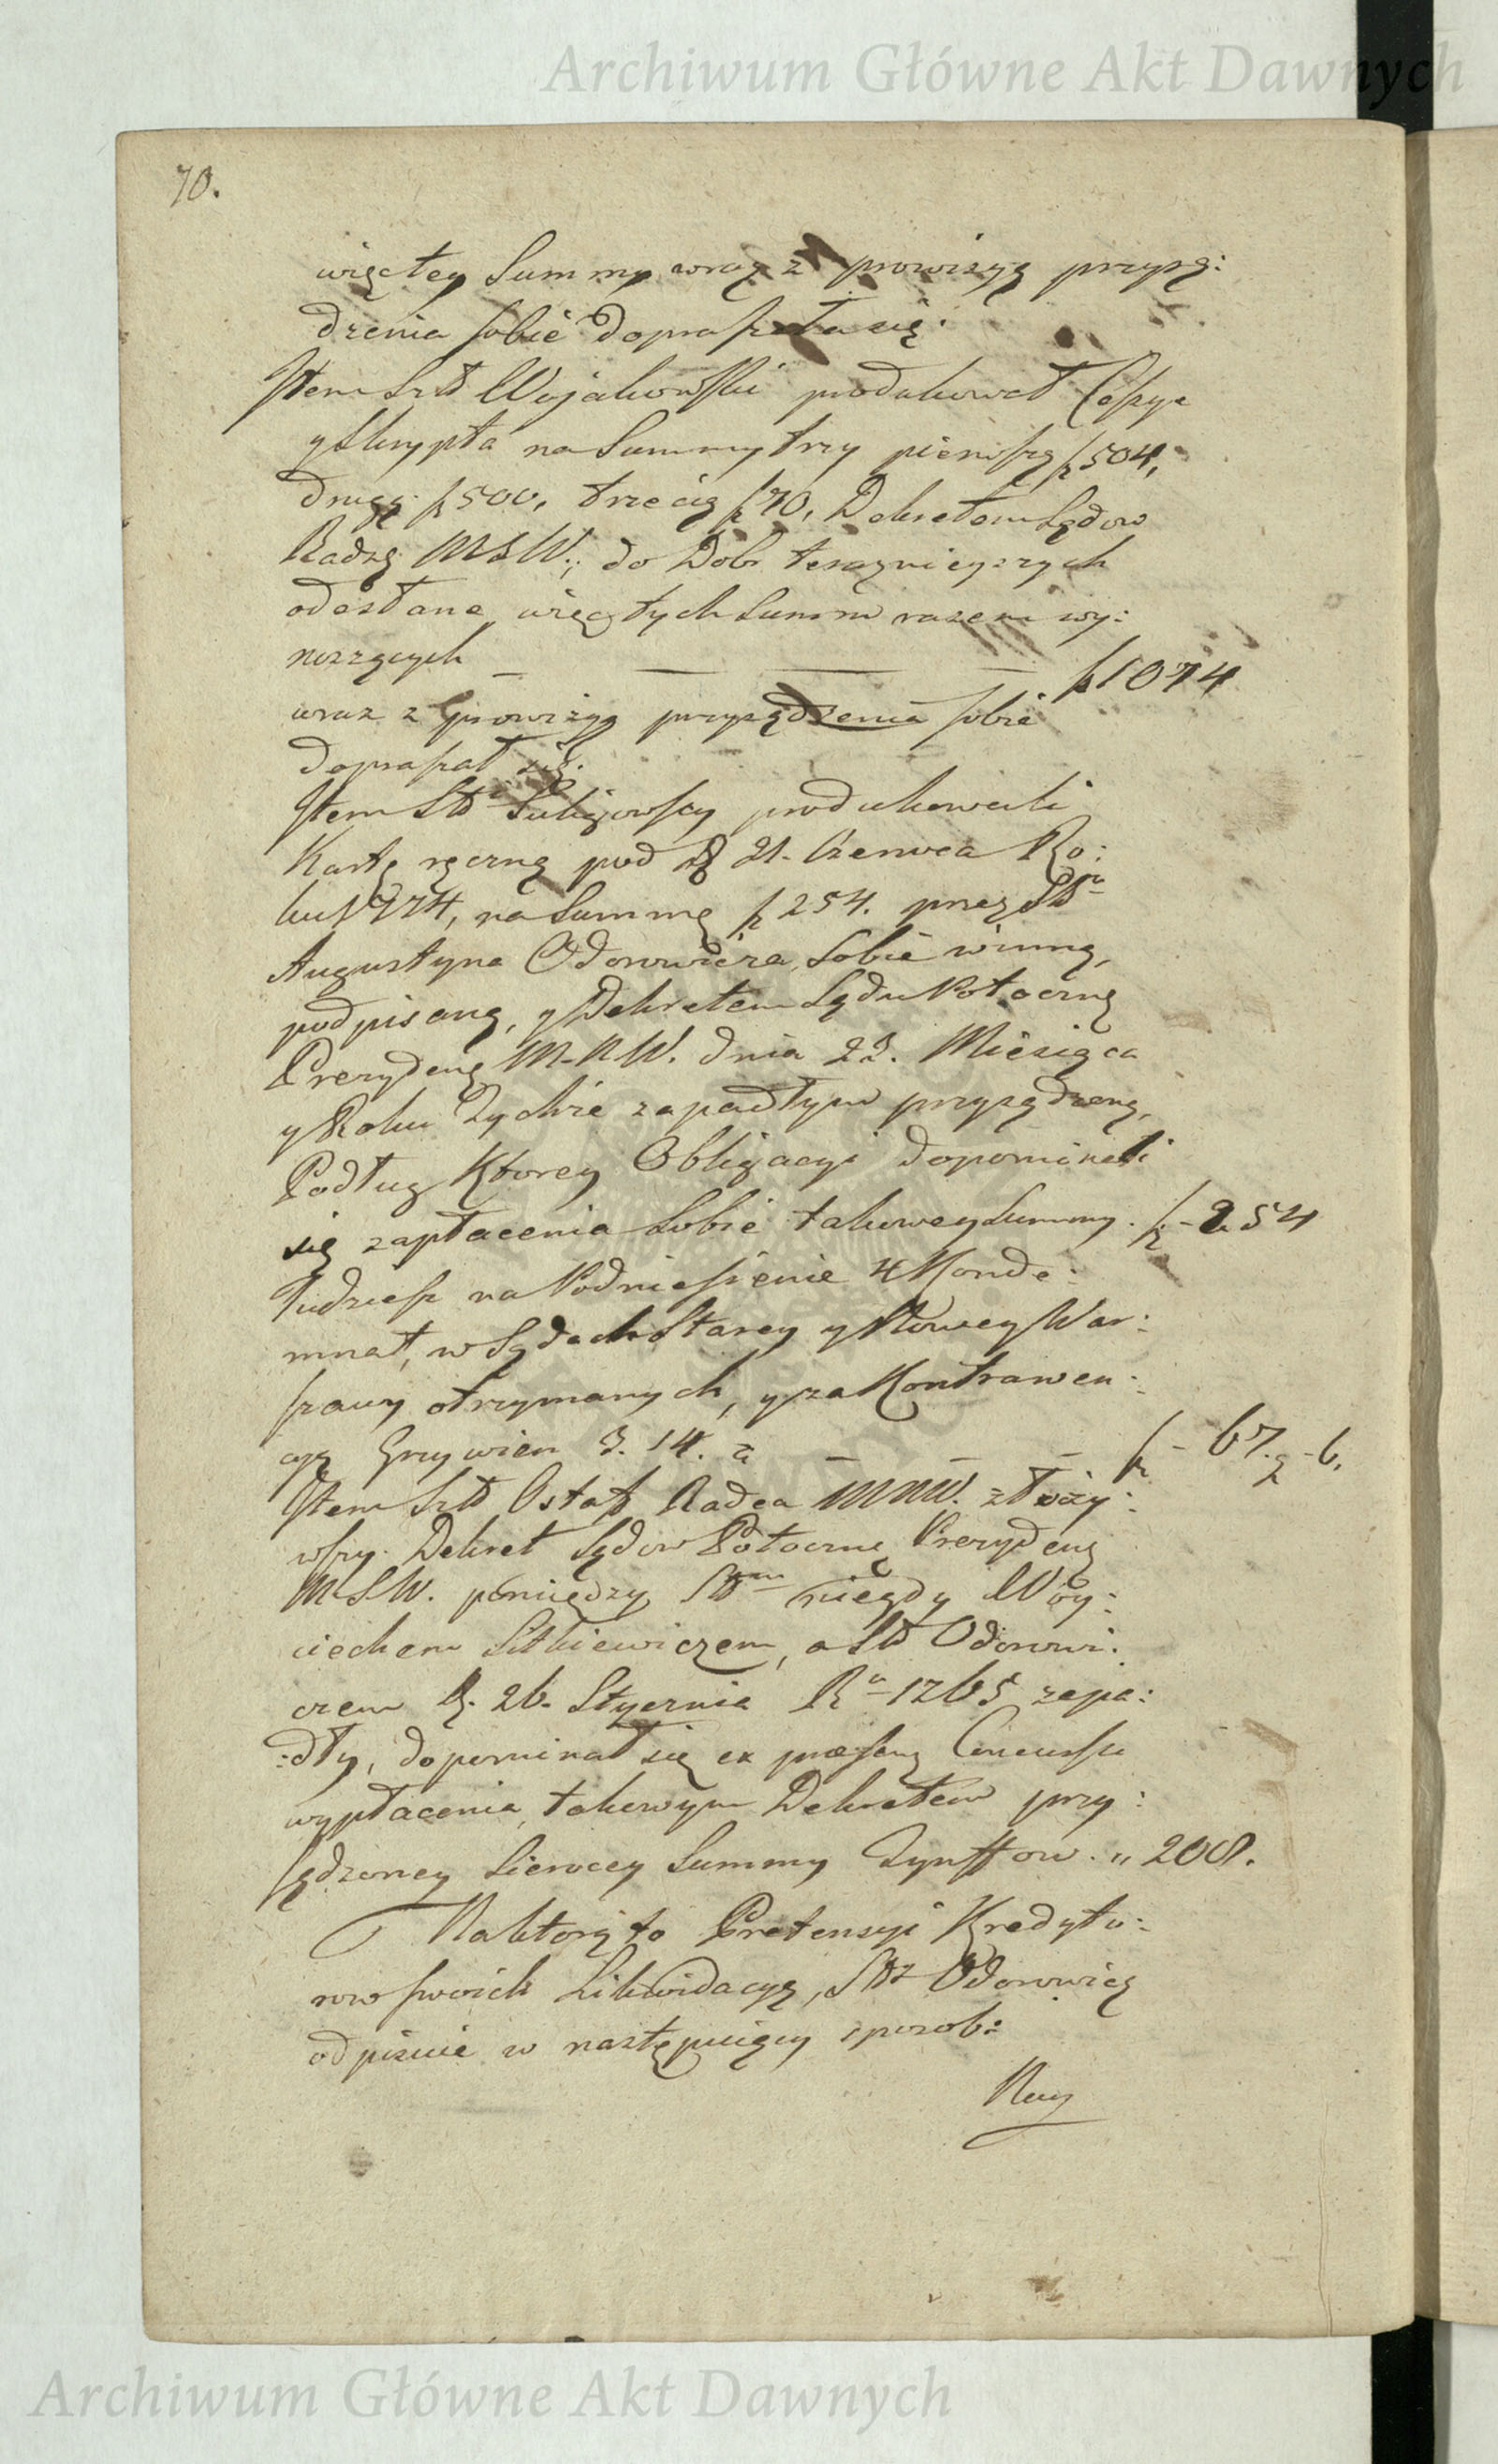 Archiwum Główne Akt Dawnych
70.
więc tey Summy wraz z prowizyą przysą:
dzenia sobie dopraszała się.
Item Szld Wojakowski produkował Cessye
y Skrypta na Summy trzy pierwszą f 504,
drugą f 500, trzecią f 70, Dekretem Sądow
Radzę MSW., do Dobr teraznieyszych
odesłane, więc tych Summ razem wy:
noszących — — — — f 1074
wraz z prowizyą przysądzenia sobie
dopraszał się.
Item Sld Suligowscy produkowali
Kartę ręczną pod D 21. Czerwca Ro:
ku 1774, na Summę f 254. przez Sld
Augustyna Odorowicza, sobie winną,
podpisaną, y Dekretem Sądu Potoczną
Prezydenc M.N.W. dnia 23. Miesiąca
y Roku Tychże zapadłym przysądzoną,
Podług Ktorey Obligacyi dopomineli
się zapłacenia Sobie takowey Summy. f - 254
Tudziesz na Podniesienie 4 Konde:
mnat, w Sądach Starey y Nowey War:
szawy otrzymanych, y za Kontrawen:
cyą Grzywien 3. 14. a — — f - 67. g - 6.
Item Szld Ostał Radca MNW. złoży:
wszy Dekret Sądow Potoczne Prezydenc
MSW. pomiędzy Sld niegdy Woy:
ciechem Sitkiewiczem, a Sld Odorowi:
czem D. 26. Stycznia R 1765 zapa:
:dły, dopominał się ex præsenc Concursu
wypłacenia, takowym Dekretem przy:
sądzoney Sierocey Summy Tynffow. „ 208.
Na ktorą to Pretensyi Kredyto:
row swoich Likwidacyą, Sld Odorowicz
odpisuie w następuiący sposob:
Naý
Archiwum Główne Akt Dawnych